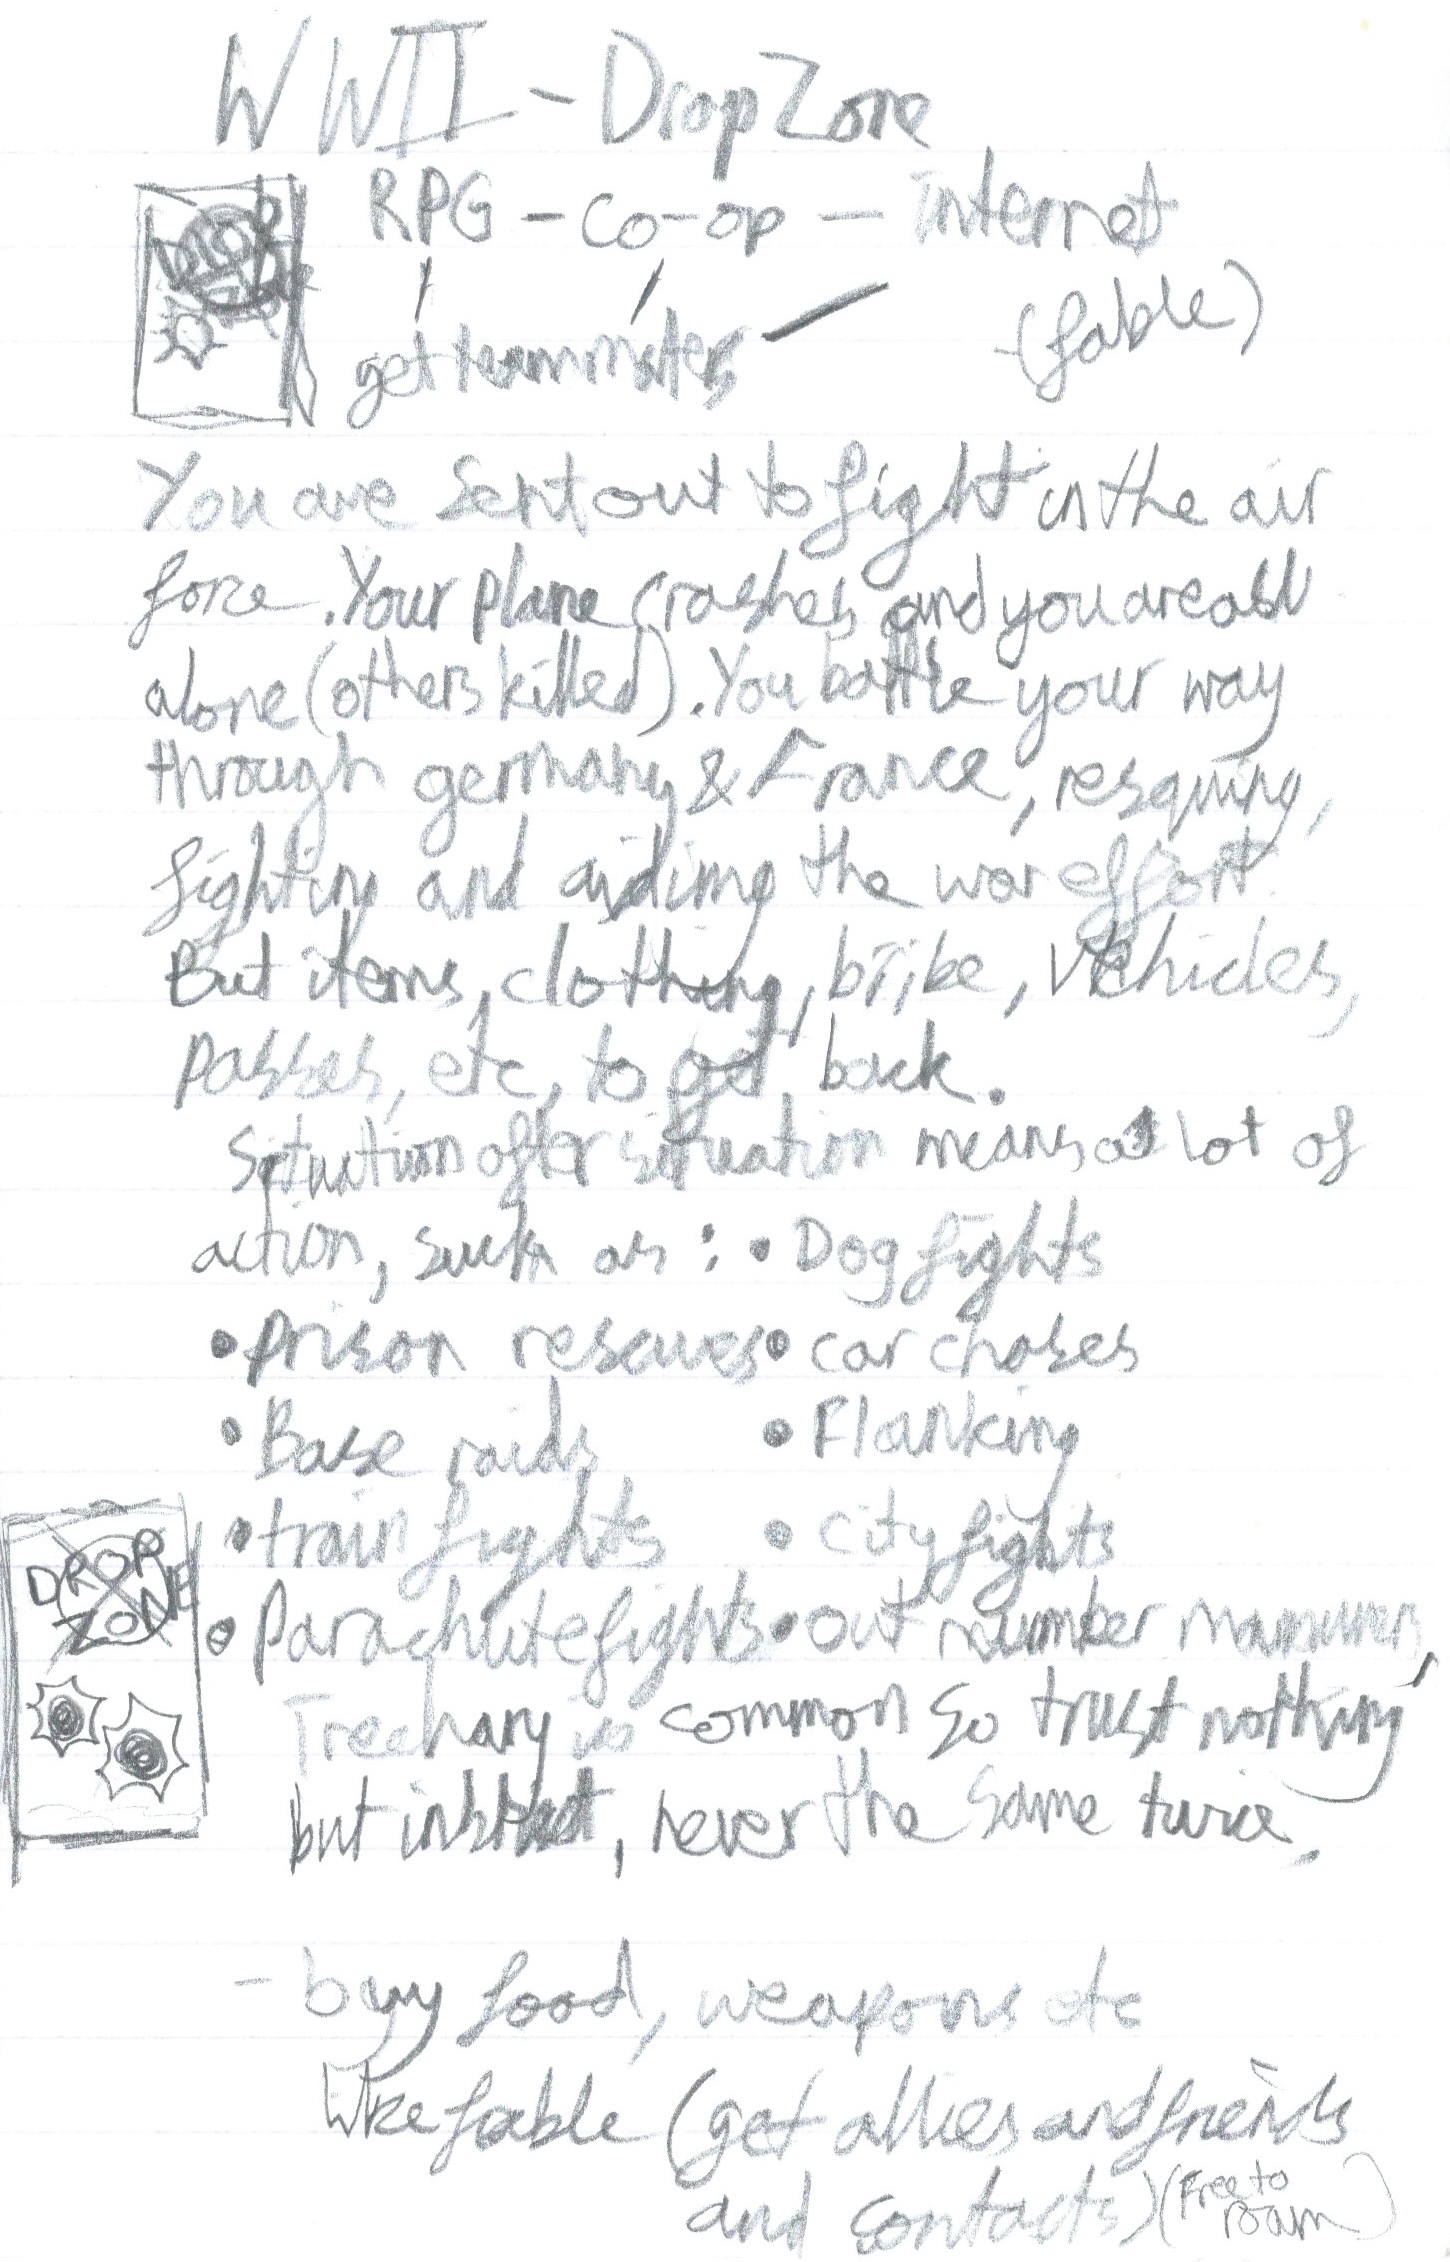 WWII - Drop Zone
RPG - Co-op - internet
(fable)
get teammates
You are sent out to fight in the air
force. Your plane crashes and you are all
alone (others killed). You battle your way
through germany & France, resquing,
fighting and aiding the war effort.
But items, clothing, bribe, vehicles,
passes, etc, to get back.
Situation after situation means a lot of
action, such as : • Dog fights
• prison rescues • car chases
• Base raids • Flanking
• train fights • city fights
DROP
ZONE
• Parachute fights • out number
Treechary is common so trust nothing
but instinct, never the same twice,
- buy food, weapons etc
like fable (get allies and friends
and contacts) (Free to
roam)